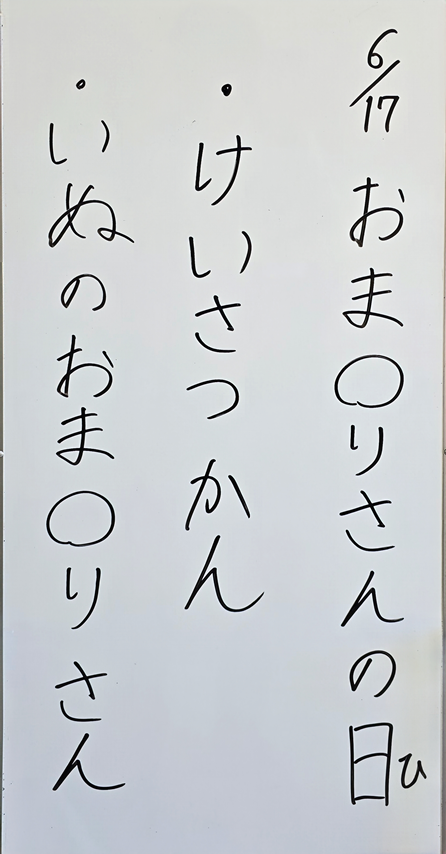 6/17 おま〇りさんの日ひ
・けいさつかん
・いぬのおま〇りさん